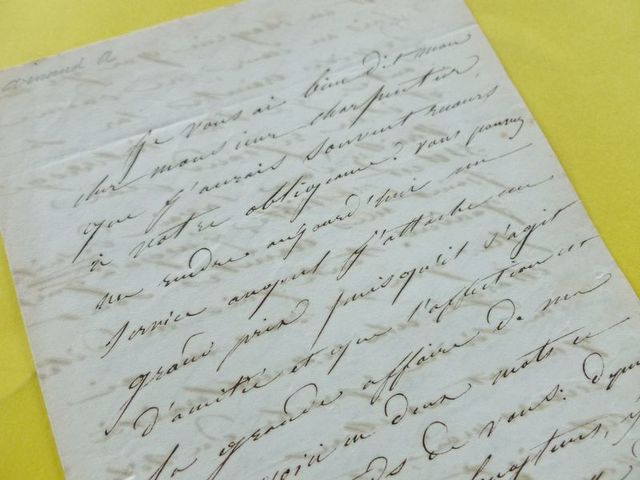 je vous ai bien dit mon
cher monsieur charpentier
que j'aurais souvent recours
à votre obligeance. vous pouvez
me rendre aujourd'hui un
service auquel j'attache un
grand prix puisqu'il s'agit
d'amitié et que l'affection est
la grande affaire de ma
voici en deux mots ce
de vous: